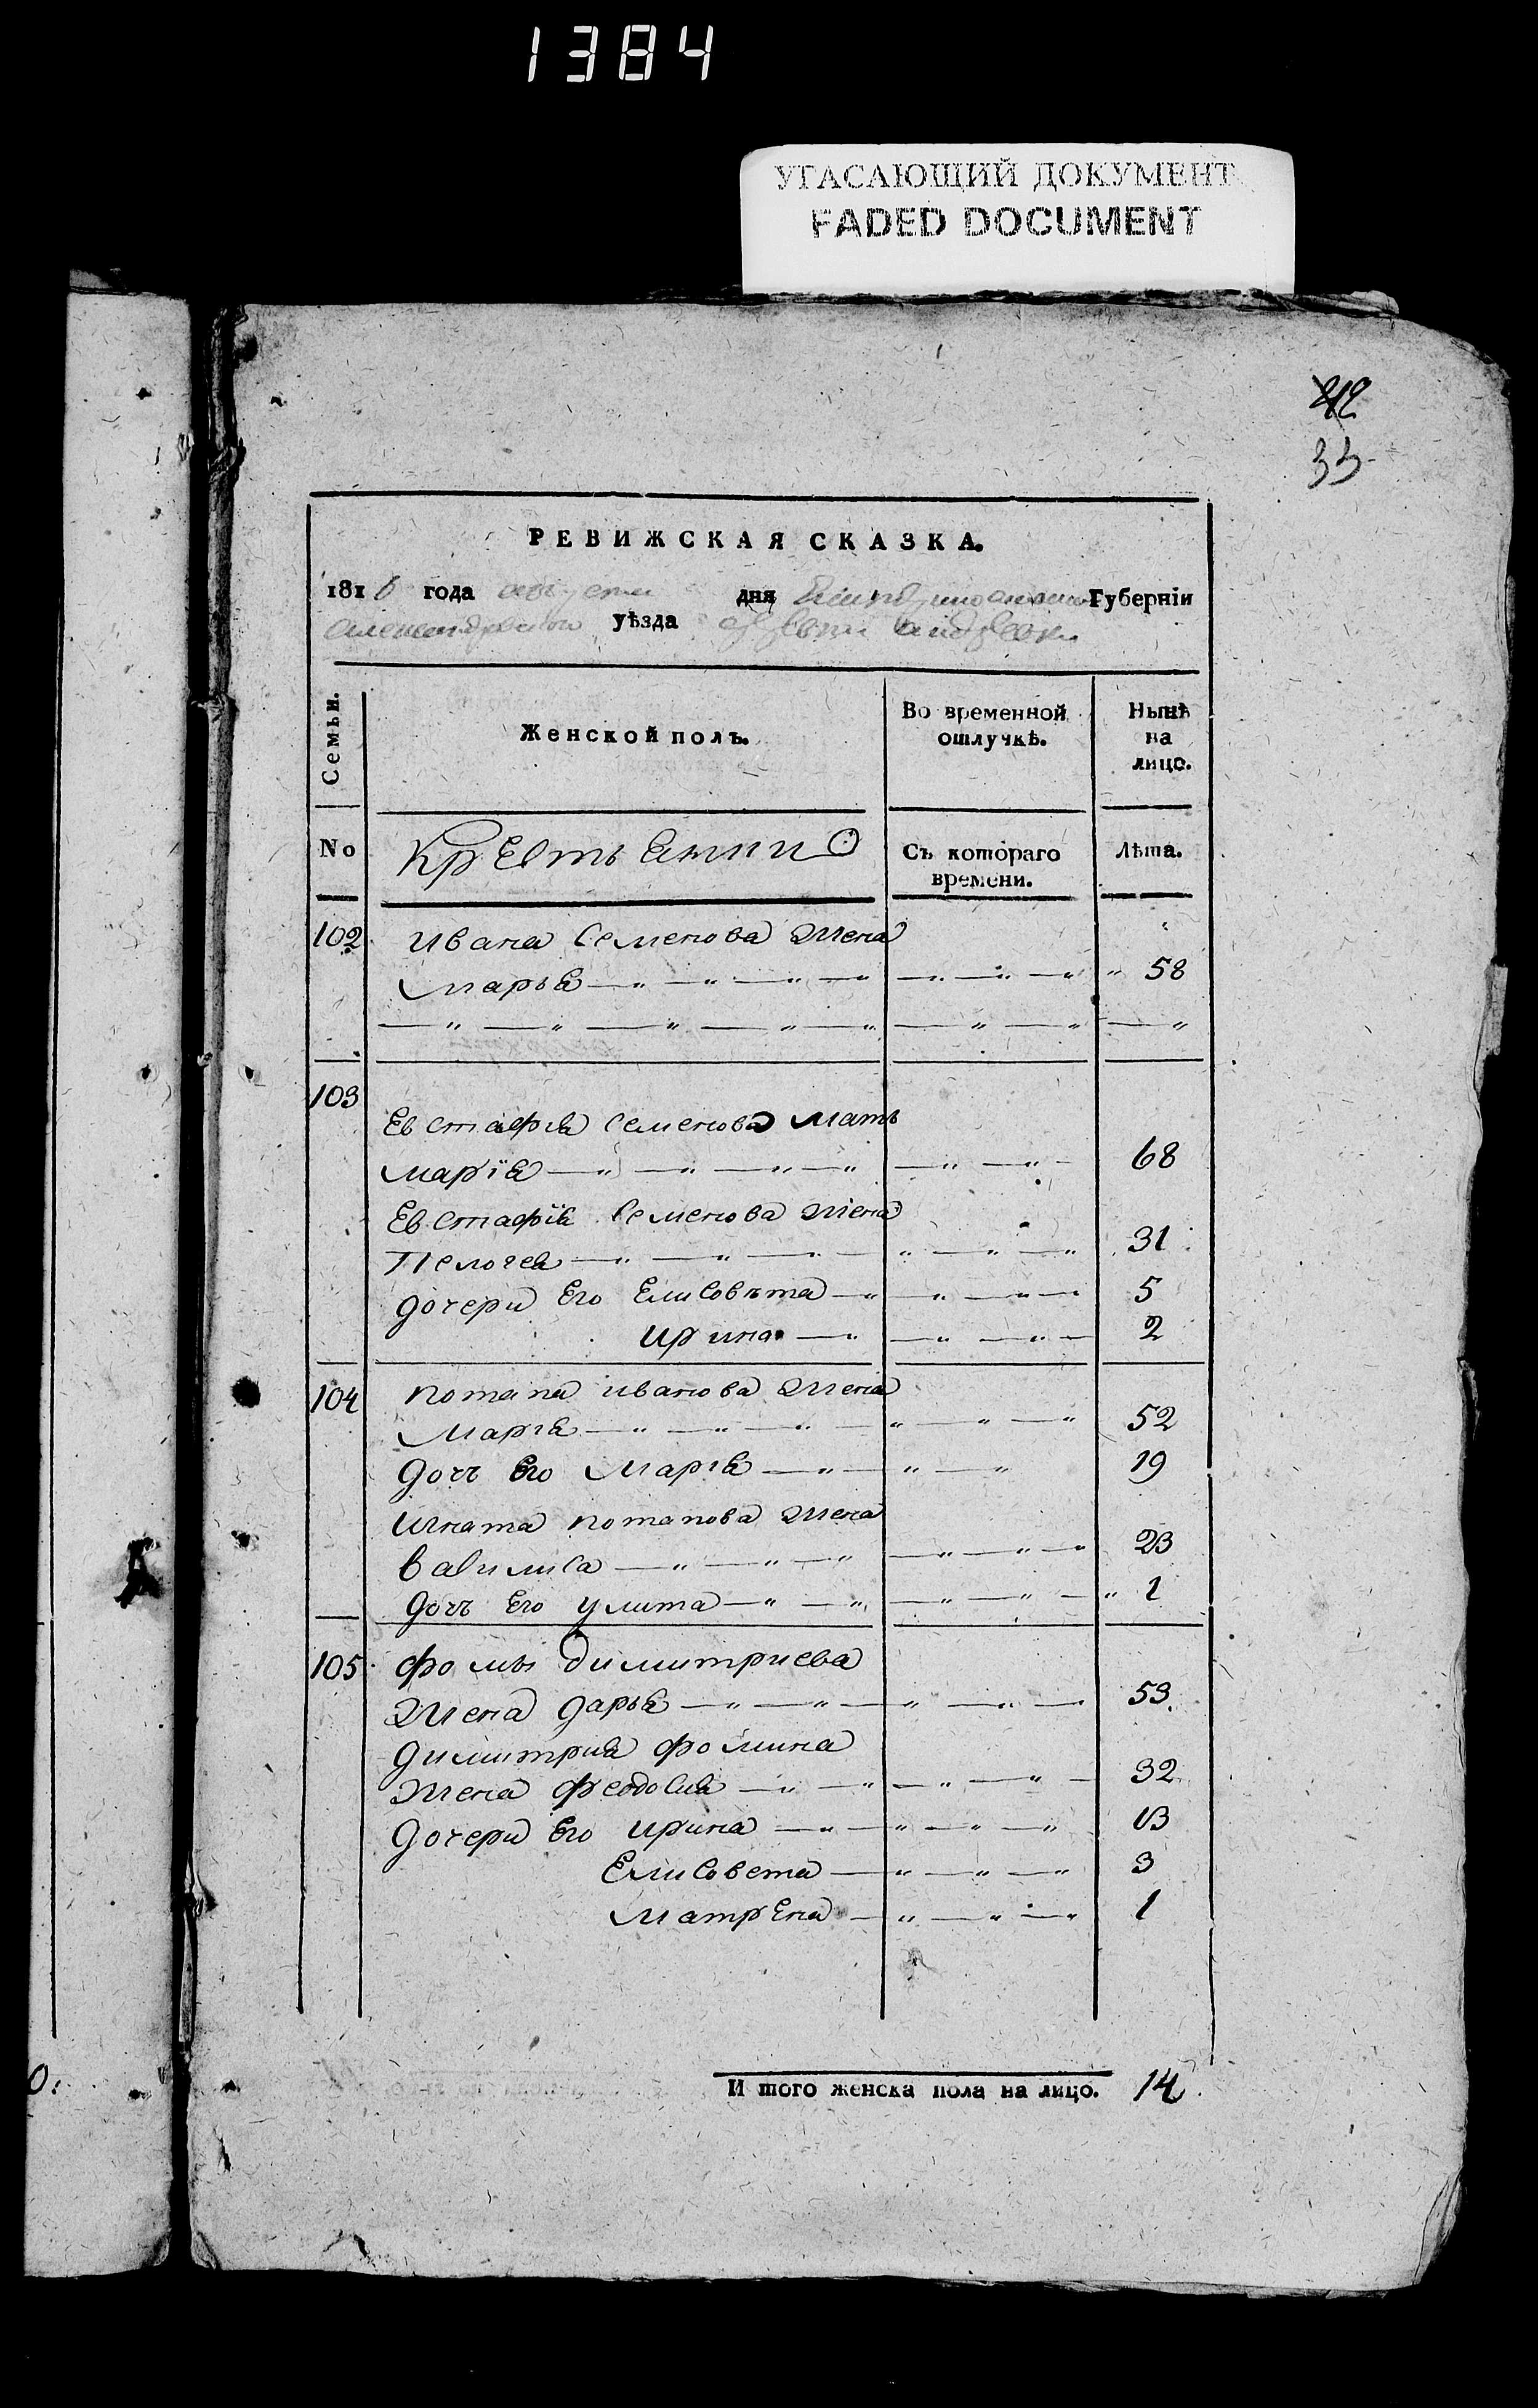 1384
УГАСАЮЩИЙ ДОКУМЕНТ
FADED DOCUMENT
42
33
РЕВИЖСКАЯ СКАЗКА.
1816 года августа дня Екатеринославской Губерніи
александровскаго уѣзда
Семьи.
Женской полъ.
Во временной отлучкѣ.
Нынѣ на лицо.
No
Крестьянии
Съ котораго времени.
Лѣта.
102 ивана Семенова жена
Марья 58
103
Евстафия Семенова мать
марїя 68
Евстафїя Семенова жена
Пелогея 31
дочери Его Елисовѣта 5
ирина 2
104 потапа иванова жена
Мария 52
дочъ Его Мария 19
игната потапова жена
Василиса 23
дочъ Его улита 1
105 фомы димитриева
жена дарья 53
димитрия фомина
жена феодосия 32
дочери Его ирина 13
Елисовета 3
Матрена 1
И того женска пола на лицо. 14
0.